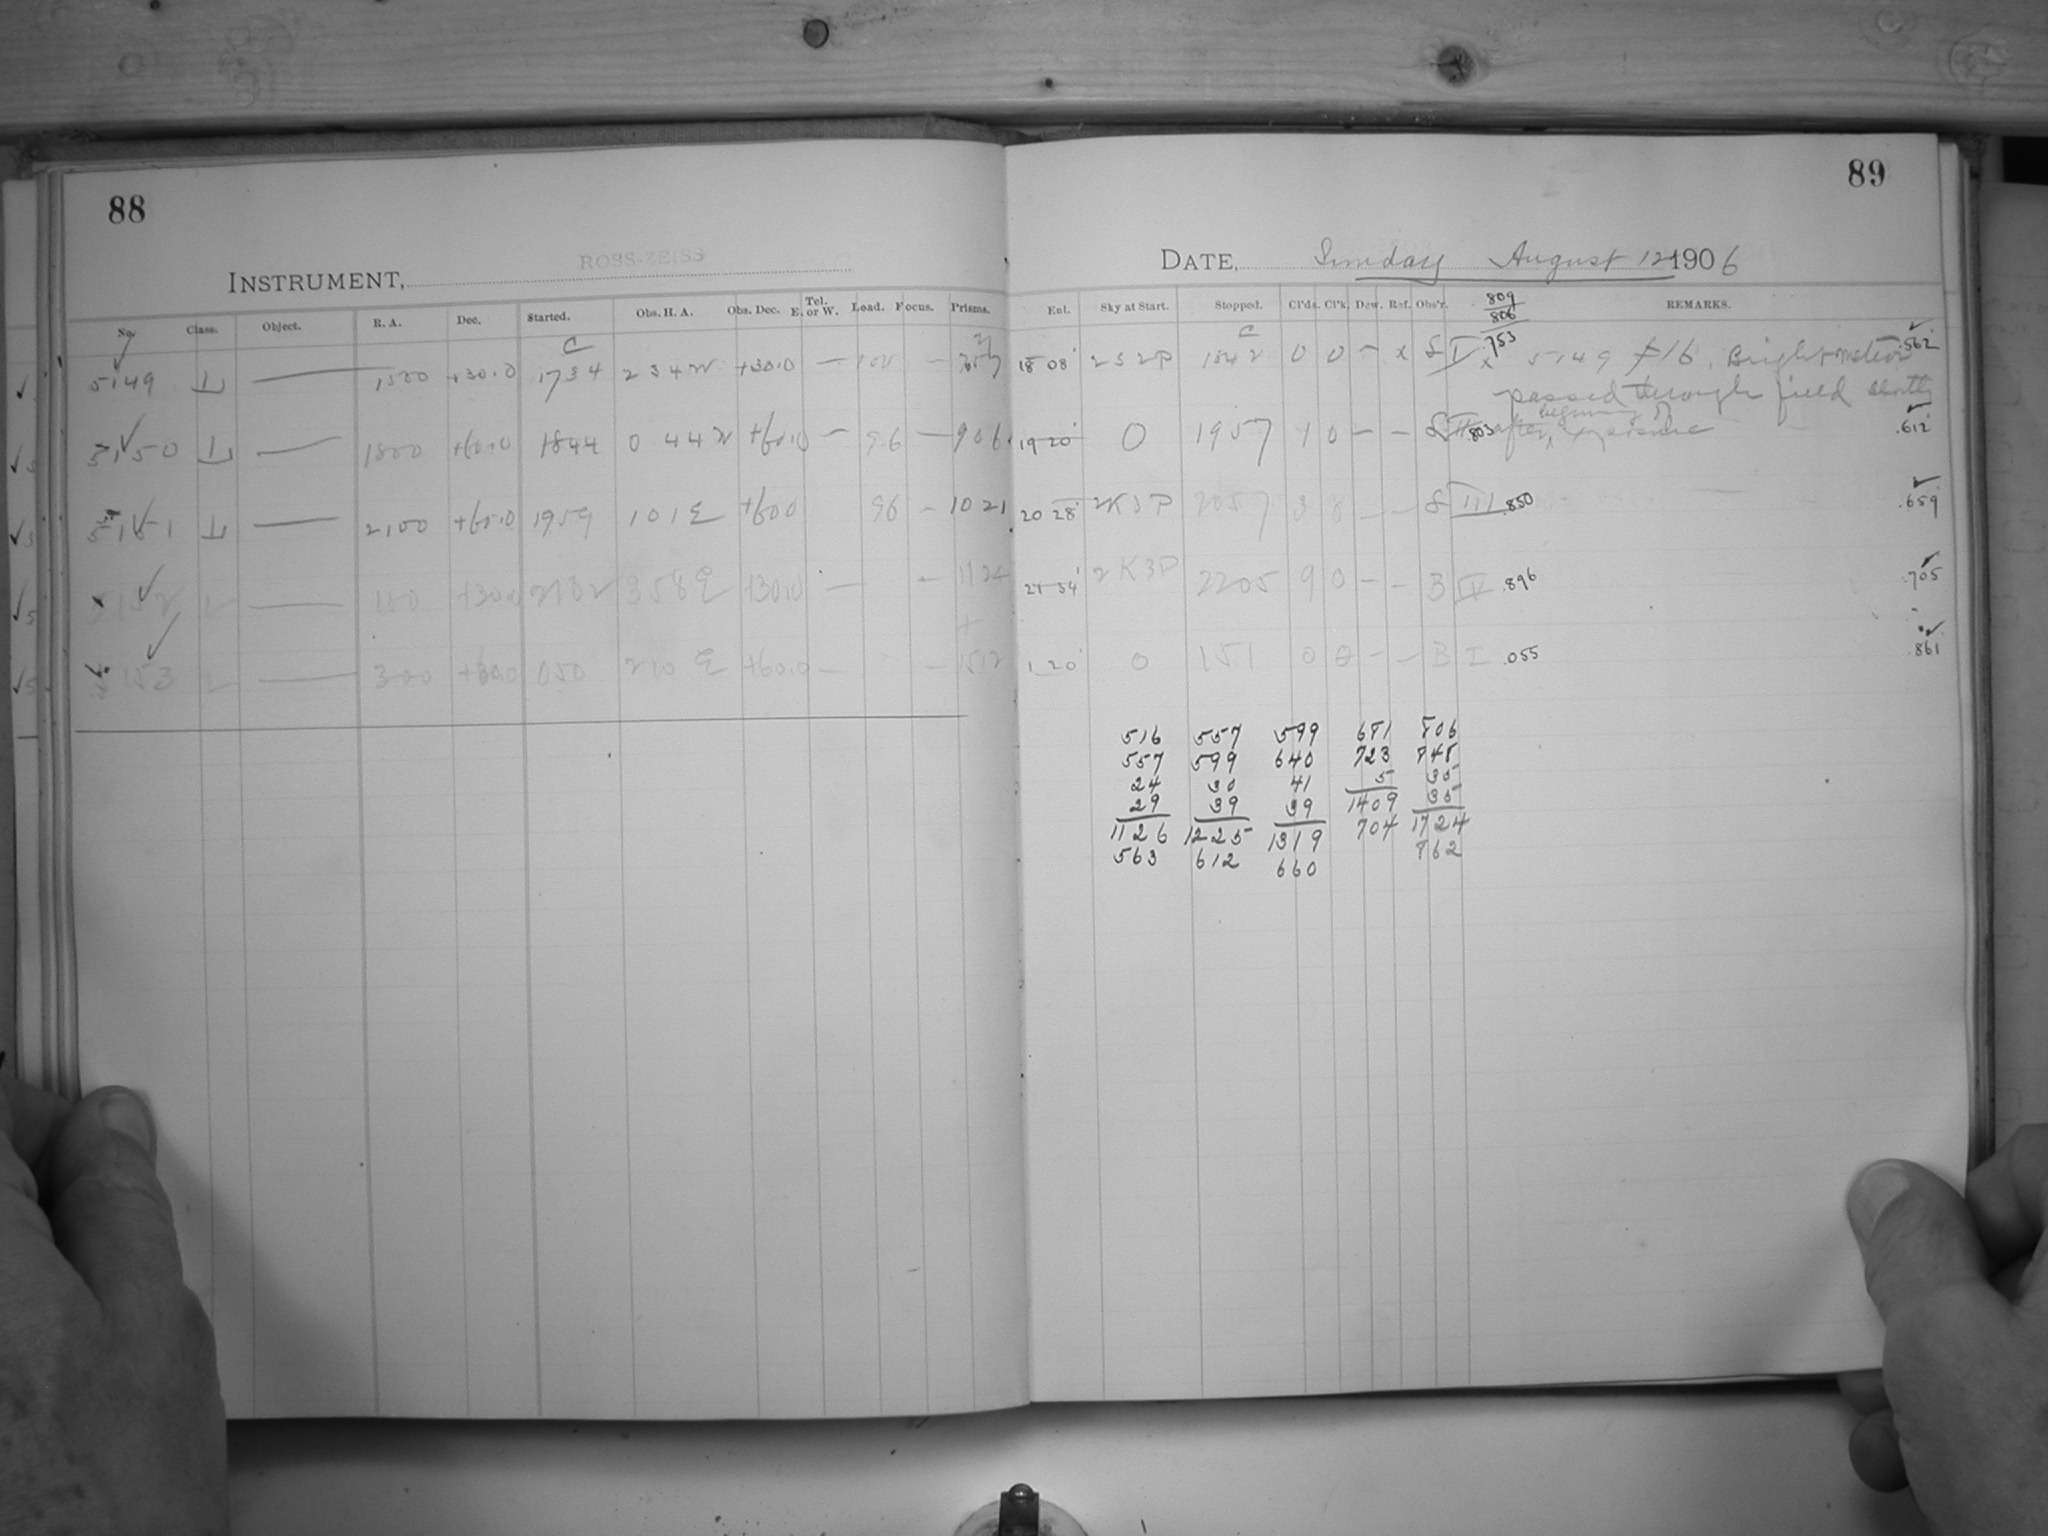 88
INSTRUMENT, ROSS-ZEISS
No. Class. Object. R. A. Dec. Started. Obs. H. A. Obs. Dec. Tel. E. or W. Load. Focus. Prisms.
5149 L — 1500 +30.0 1734 2 34 W +30.0 — —
5150 L — 1800 +60.0 1844 0 44 W +60.0 — 96 — 906
5151 L — 2100 +60.0 1959 1 01 E +60.0 96 — 1021
5152 L — +30.0 2102 358 E +30.0 — — 1124
153 L — 300 +60.0 050 210 E +60.0 — — 1512
89
DATE, Sunday August 12 1906
Ent. Sky at Start. Stopped. Cl'ds. Cl'k. Dew. Ref. Obs'r. REMARKS.
809
806
18 08 2S2P 1842 0 0 – x S V x 753 5149 ≠ 16. Bright meteor .562
passed through field shortly
beginning of
19 20 0 1957 1 0 – – S II 803 after ^ exposure .612
20 28 2K3P 2057 3 – – S III .850 .659
21 34 2K3P 2205 9 0 – – B IV .896 .705
1 20 0 151 0 0 – – B I .055 .861
516 557 599 681 806
557 599 640 723 848
24 30 41 5 35
29 39 39 1409 35
1126 1225 1319 704 1724
563 612 660 862